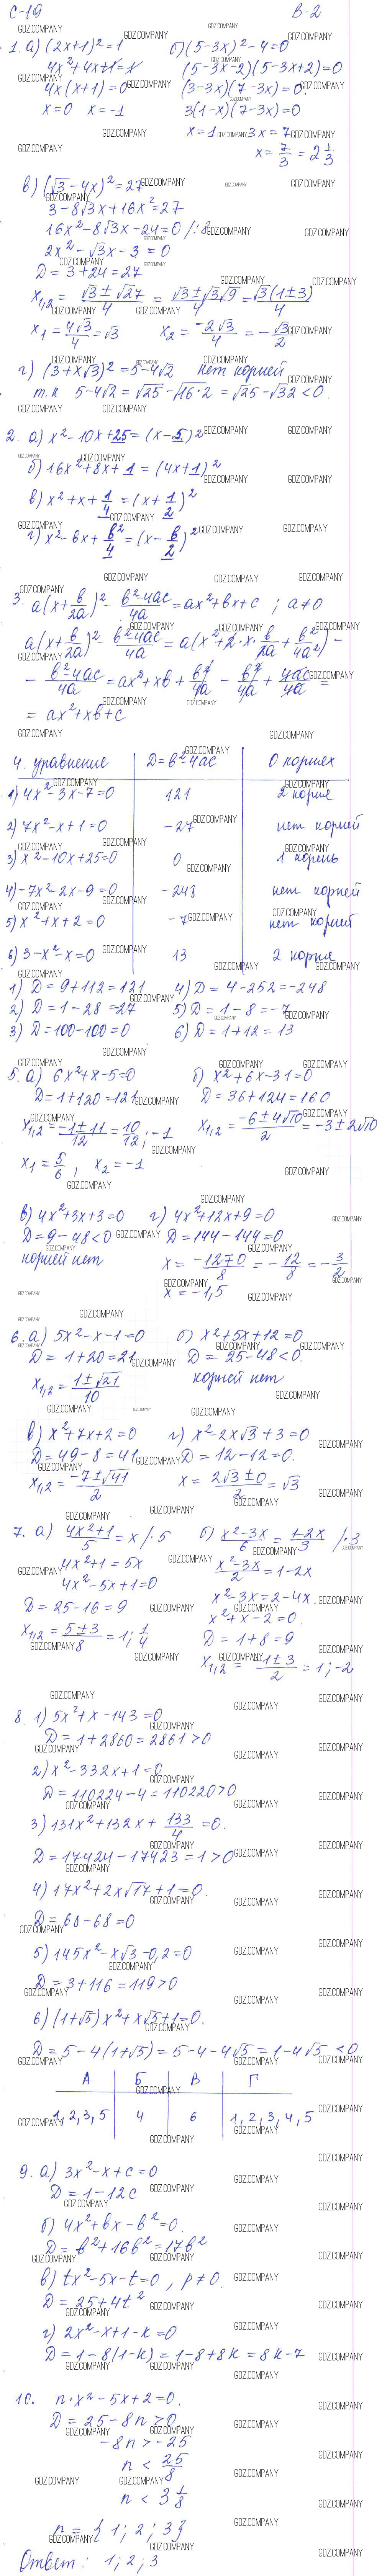 С-19 В-2
1. а) (2x+1)²=1 б) (5-3x)²-4=0
4x²+4x+1=1 (5-3x-2)(5-3x+2)=0
4x(x+1)=0 (3-3x)(7-3x)=0
x=0 x=-1 3(1-x)(7-3x)=0
x=1 3x=7
x=7/3=2 1/3
в) (√3-4x)²=27
3-8√3x+16x²=27
16x²-8√3x-24=0 /:8
2x²-√3x-3=0
D=3+24=27
x1,2=(√3±√27)/4=(√3±√3√9)/4=√3(1±3)/4
x1=4√3/4=√3 x2=-2√3/4=-√3/2
г) (3+x√3)²=5-4√2 нет корней
т.к 5-4√2=√25-√16·2=√25-√32<0.
2. а) x²-10x+25=(x-5)²
б) 16x²+8x+1=(4x+1)²
в) x²+x+1/4=(x+1/2)²
г) x²-bx+b²/4=(x-b/2)²
3. a(x+b/2a)²-(b²-4ac)/4a=ax²+bx+c; a≠0
a(x+b/2a)²-(b²-4ac)/4a=a(x²+2·x·b/2a+b²/4a²)-
-(b²-4ac)/4a=ax²+xb+b²/4a-b²/4a+4ac/4a=
=ax²+xb+c
4. уравнение D=b²-4ac 0 корнях
1) 4x²-3x-7=0 121 2 корня
2) 7x²-x+1=0 -27 нет корней
3) x²-10x+25=0 0 1 корень
4) -7x²-2x-9=0 -248 нет корней
5) x²+x+2=0 -7 нет корней
6) 3-x²-x=0 13 2 корня
1) D=9+112=121 4) D=4-252=-248
2) D=1-28=-27 5) D=1-8=-7
3) D=100-100=0 6) D=1+12=13
5. а) 6x²+x-5=0 б) x²+6x-31=0
D=1+120=121 D=36+124=160
x1,2=(-1±11)/12=10/12; -1 x1,2=(-6±4√10)/2=-3±2√10
x1=5/6, x2=-1
в) 4x²+3x+3=0 г) 4x²+12x+9=0
D=9-48<0 D=144-144=0
корней нет x=(-12±0)/8=-12/8=-3/2
x=-1,5
6. а) 5x²-x-1=0 б) x²+5x+12=0
D=1+20=21 D=25-48<0.
x1,2=(1±√21)/10 корней нет
в) x²+7x+2=0 г) x²-2x√3+3=0
D=49-8=41 D=12-12=0.
x1,2=(-7±√41)/2 x=(2√3±0)/2=√3
7. а) (4x²+1)/5=x /·5 б) (x²-3x)/6=(1-2x)/3 /·3
4x²+1=5x (x²-3x)/2=1-2x
4x²-5x+1=0 x²-3x=2-4x
D=25-16=9 x²+x-2=0
x1,2=(5±3)/8=1; 1/4 D=1+8=9
x1,2=(-1±3)/2=1; -2
8. 1) 5x²+x-143=0
D=1+2860=2861>0
2) x²-332x+1=0
D=110224-4=110220>0
3) 131x²+132x+133/4=0.
D=17424-17423=1>0
4) 17x²+2x√17+1=0.
D=68-68=0
5) 145x²-x√3-0,2=0
D=3+116=119>0
6) (1+√5)x²+x√5+1=0.
D=5-4(1+√5)=5-4-4√5=1-4√5<0
А Б В Г
1, 2, 3, 5 4 6 1, 2, 3, 4, 5
9. а) 3x²-x+c=0
D=1-12c
б) 4x²+bx-b²=0.
D=b²+16b²=17b²
в) tx²-5x-t=0, p≠0.
D=25+4t²
г) 2x²-x+1-k=0
D=1-8(1-k)=1-8+8k=8k-7
10. n·x²-5x+2=0.
D=25-8n>0
-8n>-25
n<25/8
n<3 1/8
n={1; 2; 3}
Ответ: 1; 2; 3